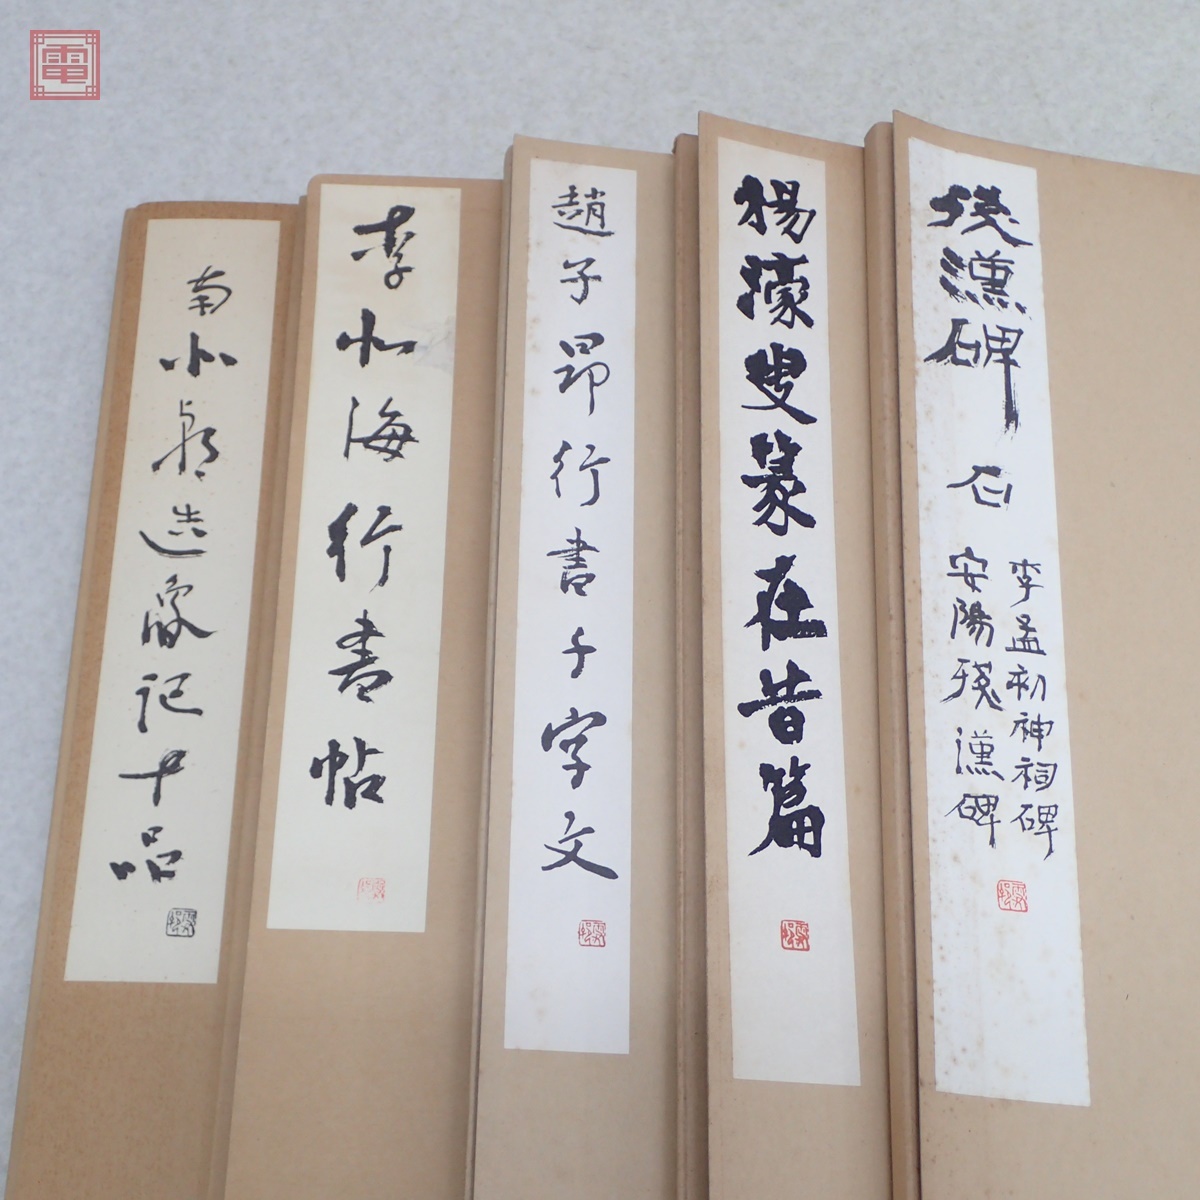 電
後漢碑
李孟初神祠碑
安陽残漢碑
楊濠叟篆在昔篇
趙子昂行書千字文
李北海行書帖
南北朝造象記十品